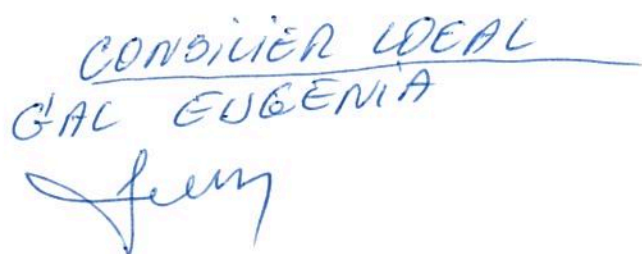 CONSILIER LOCAL
GAL EUGENIA